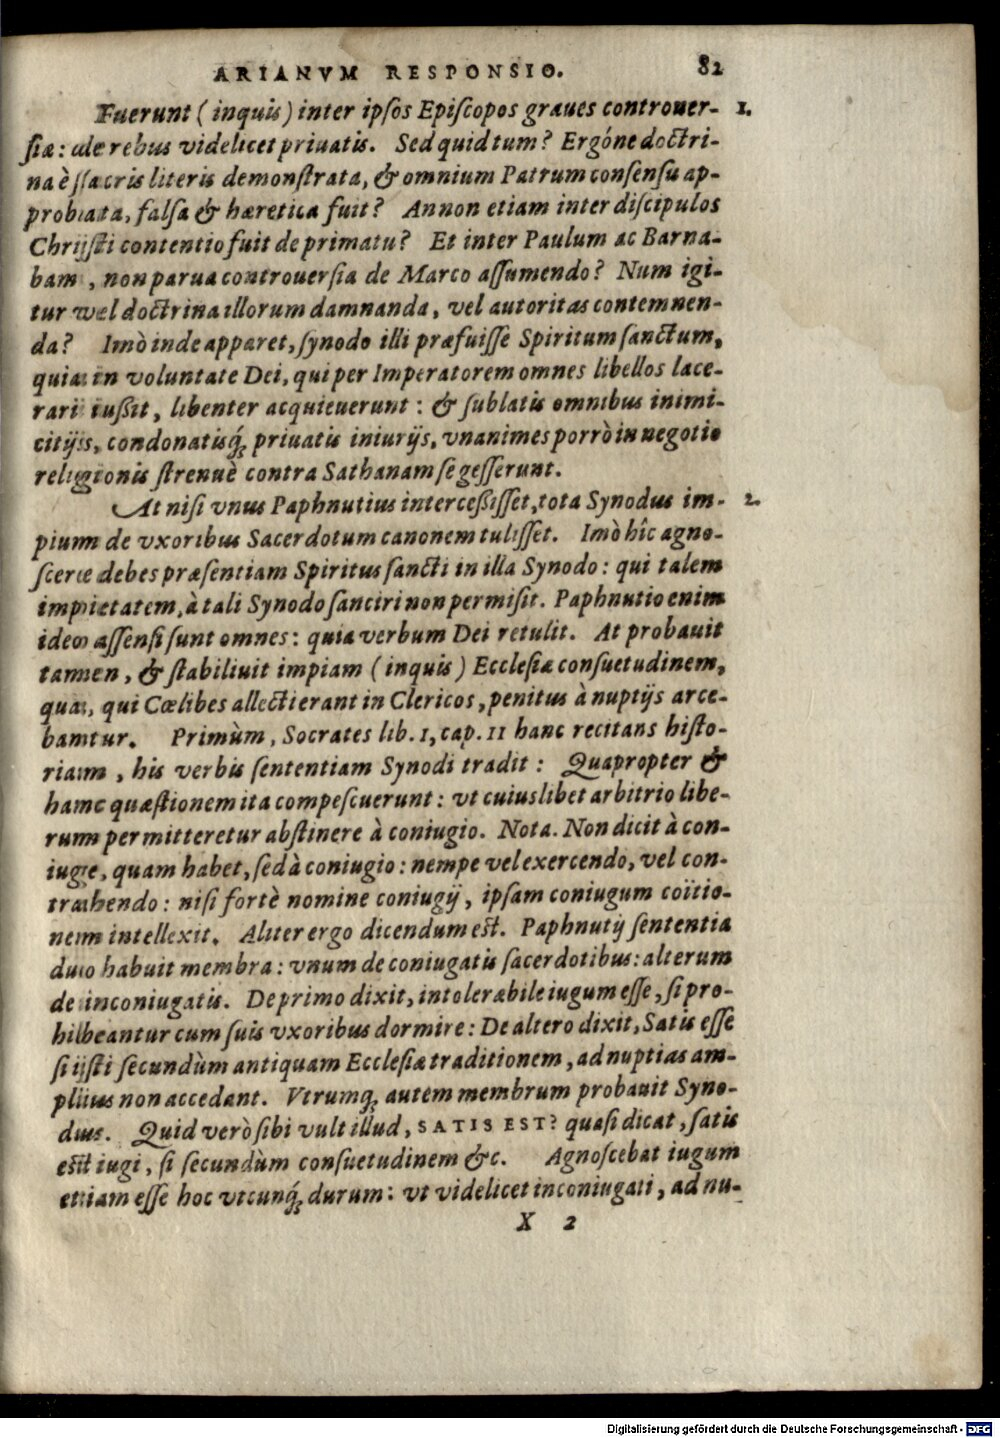 ARIANVM RESPONSIO. 82
Fuerunt (inquis) inter ipſos Epiſcopos graues controuer- 1.
ſiæ: de rebus videlicet priuatis. Sed quid tum? Ergóne doctri-
na è ſacris literis demonſtrata, & omnium Patrum conſenſu ap-
probata, falſa & hæretica fuit? An non etiam inter diſcipulos
Chriſti contentio fuit de primatu? Et inter Paulum ac Barna-
bam, non parua controuerſia de Marco aſſumendo? Num igi-
tur vel doctrina illorum damnanda, vel autoritas contemnen-
da? Imò inde apparet, ſynodo illi præfuiſſe Spiritum ſanctum,
quia in voluntate Dei, qui per Imperatorem omnes libellos lace-
rari iußit, libenter acquieuerunt: & ſublatis omnibus inimi-
citijs, condonatisq́; priuatis iniurijs, vnanimes porrò in negotio
religionis ſtrenuè contra Sathanam ſe geſſerunt.
At niſi vnus Paphnutius interceßiſſet, tota Synodus im- 2.
pium de vxoribus Sacerdotum canonem tuliſſet. Imò hîc agno-
ſcere debes præſentiam Spiritus ſancti in illa Synodo: qui talem
impietatem, à tali Synodo ſanciri non permiſit. Paphnutio enim
ideo aſſenſi ſunt omnes: quia verbum Dei retulit. At probauit
tamen, & ſtabiliuit impiam (inquis) Eccleſiæ conſuetudinem,
qua, qui Cœlibes allecti erant in Clericos, penitus à nuptijs arce-
bantur. Primùm, Socrates lib. 1, cap. 11 hanc recitans hiſto-
riam, his verbis ſententiam Synodi tradit: Quapropter &
hanc quæſtionem ita compeſcuerunt: vt cuiuslibet arbitrio libe-
rum permitteretur abſtinere à coniugio. Nota. Non dicit à con-
iuge, quam habet, ſed à coniugio: nempe vel exercendo, vel con-
trahendo: niſi fortè nomine coniugij, ipſam coniugum coïtio-
nem intellexit. Aliter ergo dicendum eſt. Paphnutij ſententia
duo habuit membra: vnum de coniugatis ſacerdotibus: alterum
de inconiugatis. De primo dixit, intolerabile iugum eſſe, ſi pro-
hibeantur cum ſuis vxoribus dormire: De altero dixit, Satis eſſe
ſi iſti ſecundùm antiquam Eccleſiæ traditionem, ad nuptias am-
plius non accedant. Vtrumq́; autem membrum probauit Syno-
dus. Quid verò ſibi vult illud, SATIS EST? quaſi dicat, ſatis
eſt iugi, ſi ſecundùm conſuetudinem &c. Agnoſcebat iugum
etiam eſſe hoc vtcunq́; durum: vt videlicet inconiugati, ad nu-
X 2
Digitalisierung gefördert durch die Deutsche Forschungsgemeinschaft - DFG